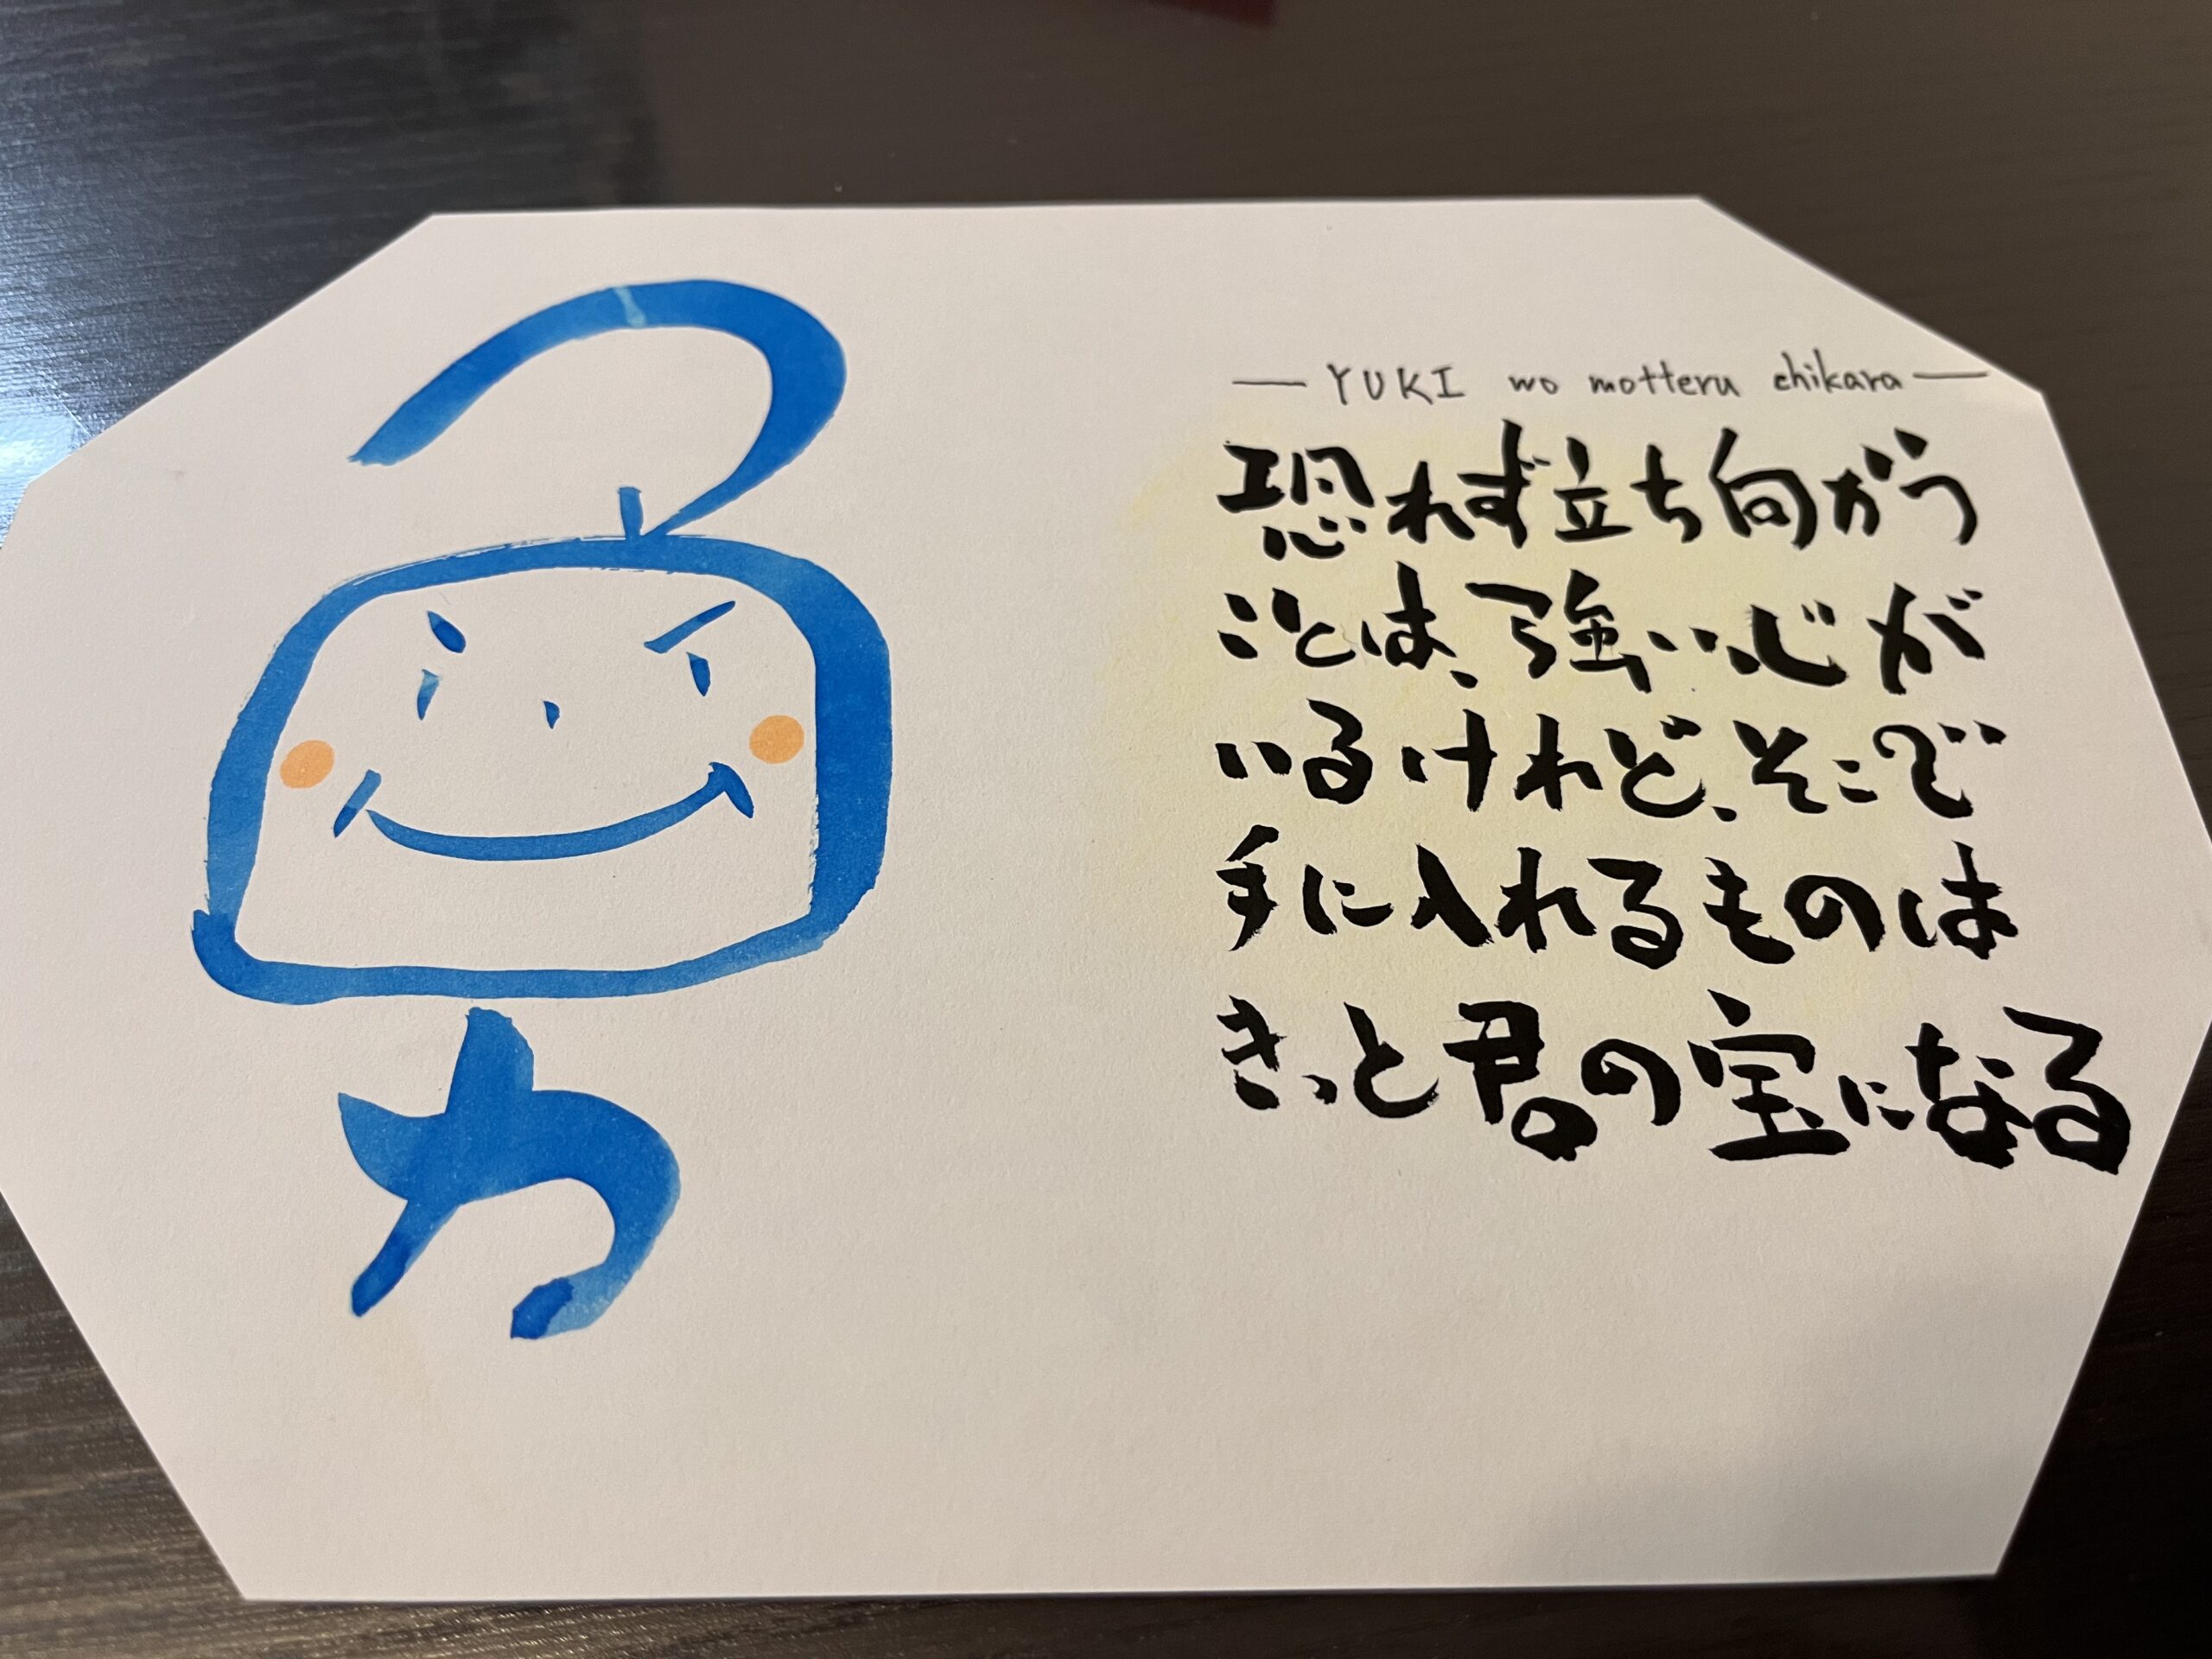 勇
— YUKI wo motteru chikara —
恐れず立ち向かう
ことは、強い心が
いるけれど、そこで
手に入れるものは
きっと君の宝になる